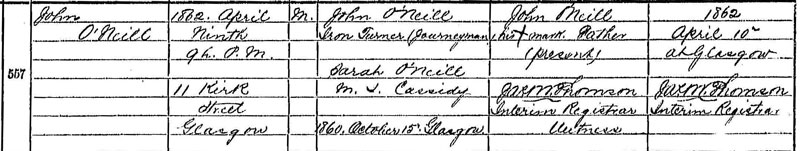 557
John
O'Neill
1862. April
Ninth
9h. P.M.
11 Kirk
Street
Glasgow
M.
John O'Neill
Iron Turner (Journeyman)
Sarah O'Neill
M. S. Cassidy
1860. October 15. Glasgow
John Neill
his + mark. Father
(present)
Jas. M. Thomson
Interim Registrar
Witness
1862
April 10
at Glasgow
Jas. M. Thomson
Interim Registrar